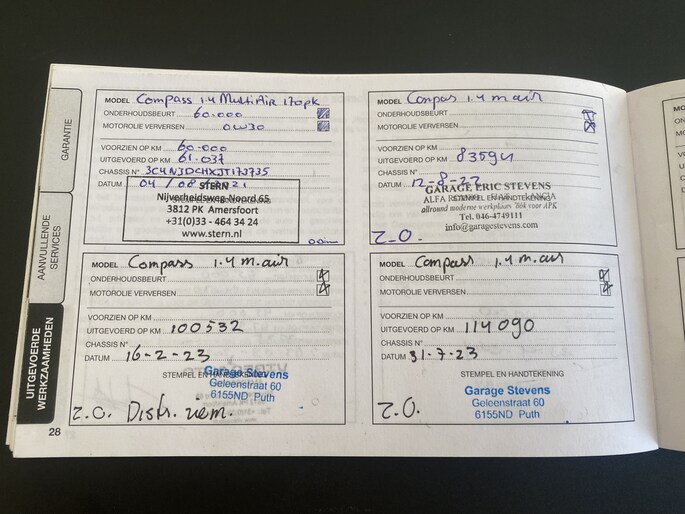 GARANTIE
AANVULLENDE
SERVICES
UITGEVOERDE
WERKZAAMHEDEN
MODEL Compass 1.4 MultiAir 170pk
ONDERHOUDSBEURT 60.000
MOTOROLIE VERVERSEN 0W30
VOORZIEN OP KM 60.000
UITGEVOERD OP KM 61.037
CHASSIS N°
DATUM 04 / 08
STERN
Nijverheidsweg-Noord 65
3812 PK Amersfoort
+31(0)33 - 464 34 24
www.stern.nl
MODEL Compas 1.4 m.air
ONDERHOUDSBEURT
MOTOROLIE VERVERSEN
VOORZIEN OP KM
UITGEVOERD OP KM
CHASSIS N°
DATUM 12-8-22
GARAGE ERIC STEVENS
allround moderne werkplaats. Ook voor APK
Tel. 046-4749111
info@garagestevens.com
Z.O.
MODEL Compass 1.4 m.air
ONDERHOUDSBEURT
MOTOROLIE VERVERSEN
VOORZIEN OP KM
UITGEVOERD OP KM 100532
CHASSIS N°
DATUM 16-2-23
STEMPEL EN HANDTEKENING
Garage Stevens
Geleenstraat 60
6155ND Puth
Z.O. Distr. riem.
MODEL Compass 1.4 m.air
ONDERHOUDSBEURT
MOTOROLIE VERVERSEN
VOORZIEN OP KM
UITGEVOERD OP KM 114090
CHASSIS N°
DATUM 31-7-23
STEMPEL EN HANDTEKENING
Garage Stevens
Geleenstraat 60
6155ND Puth
Z.O.
28